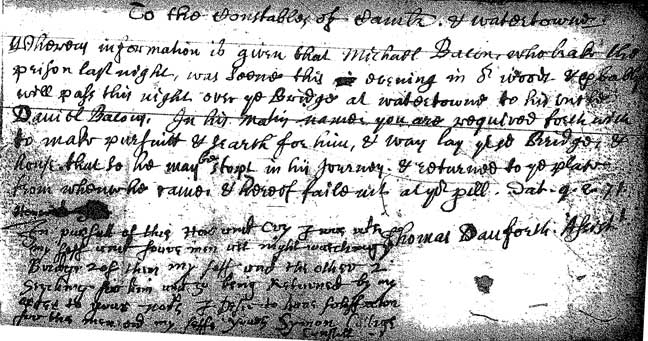 To the Constables of Cambr. & Watertowne
Whereas information is given that Michaell Bacon, who brake the
prison last night, was seene this evening in ye woods & probably
will pass this night over ye Bridge at watertowne to his unkle
Daniel Bacon. In his Maties name you are required forth with
to make pursuitt & search for him, & way lay ye Bridge, &
house that so he may be stopt in his Journey. & returned to ye place
from whence he came, & hereof faile not at yor perill. Dat. 9. 2. 71.
Thomas Danforth. Assist
In pursutt of this Hew and Cry I was
my selff and foure men all night watching
Bridge 2 of them my selff and the other 2
Serching for him and
to your I to have sattisfaction
for the men and my selffe yours Symon